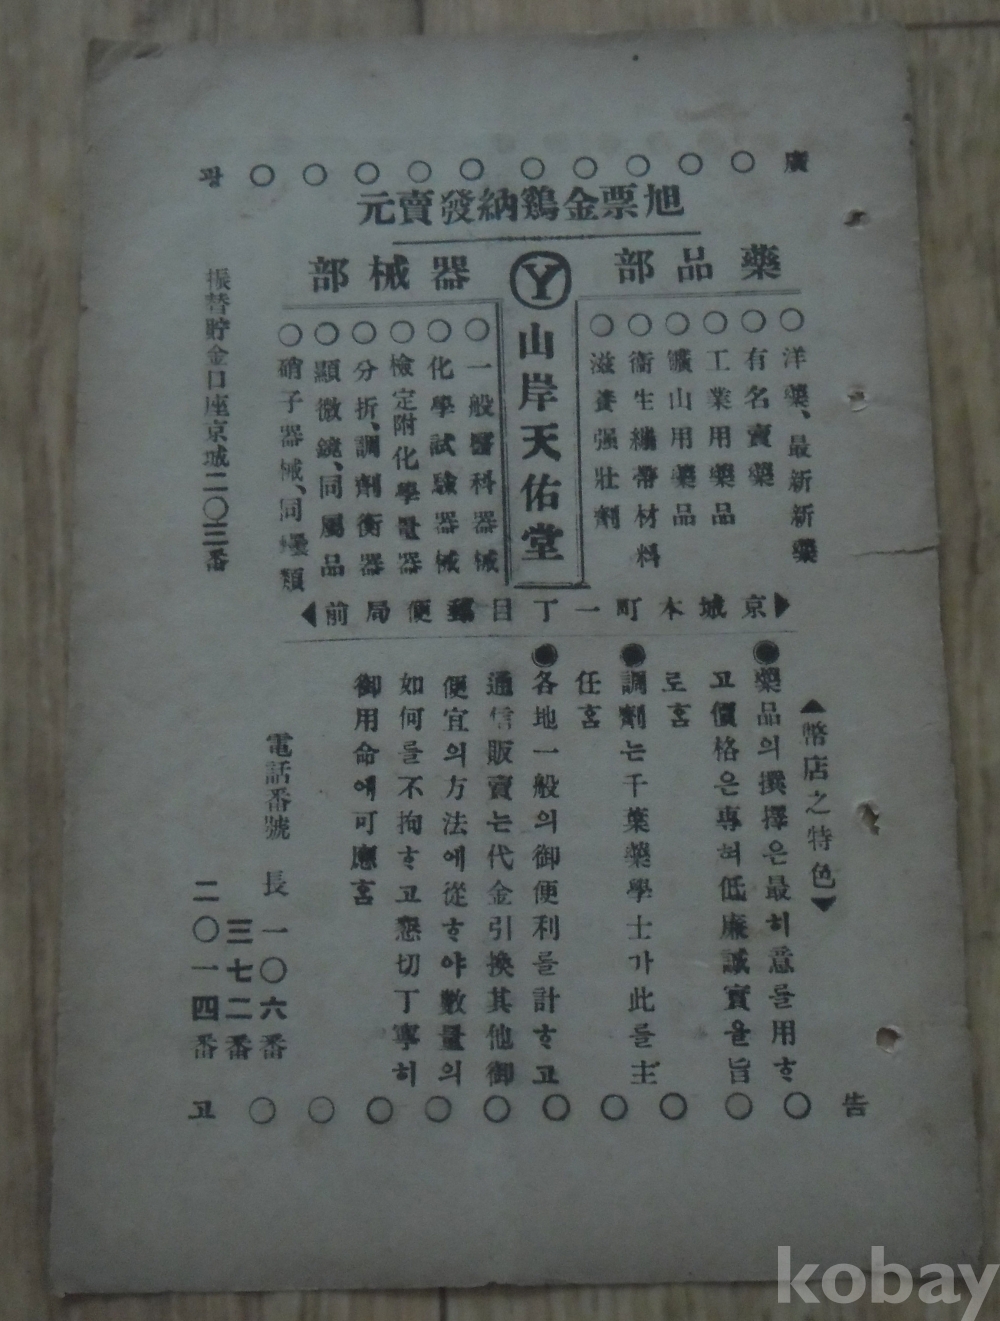 廣 ○ ○ ○ ○ ○ ○ ○ ○ ○ ○ 광
旭票金鷄納發賣元
藥品部
○洋藥、最新新藥
○有名賣藥
○工業用藥品
○鑛山用藥品
○衞生繃帶材料
○滋養强壯劑
Y
山岸天佑堂
器械部
○一般醫科器械
○化學試驗器械
○檢定附化學量器
○分折、調劑衡器
○顯微鏡、同屬品
○硝子器械、同 類
振替貯金口座京城二〇三番
京城本町一丁目郵便局前
幣店之特色
●藥品의撰擇은最히意를用ᄒᆞ
고價格은專혀低廉誠實을旨
로홈
●調劑는千葉藥學士가此를主
任홈
●各地一般의御便利를計ᄒᆞ고
通信販賣는代金引換其他御
便宜의方法에從ᄒᆞ야數量의
如何를不拘ᄒᆞ고懇切丁寧히
御用命에可應홈
電話番號 長 一〇六番
三七二番
二〇一四番
告 ○ ○ ○ ○ ○ ○ ○ ○ ○ ○ 고
kobay